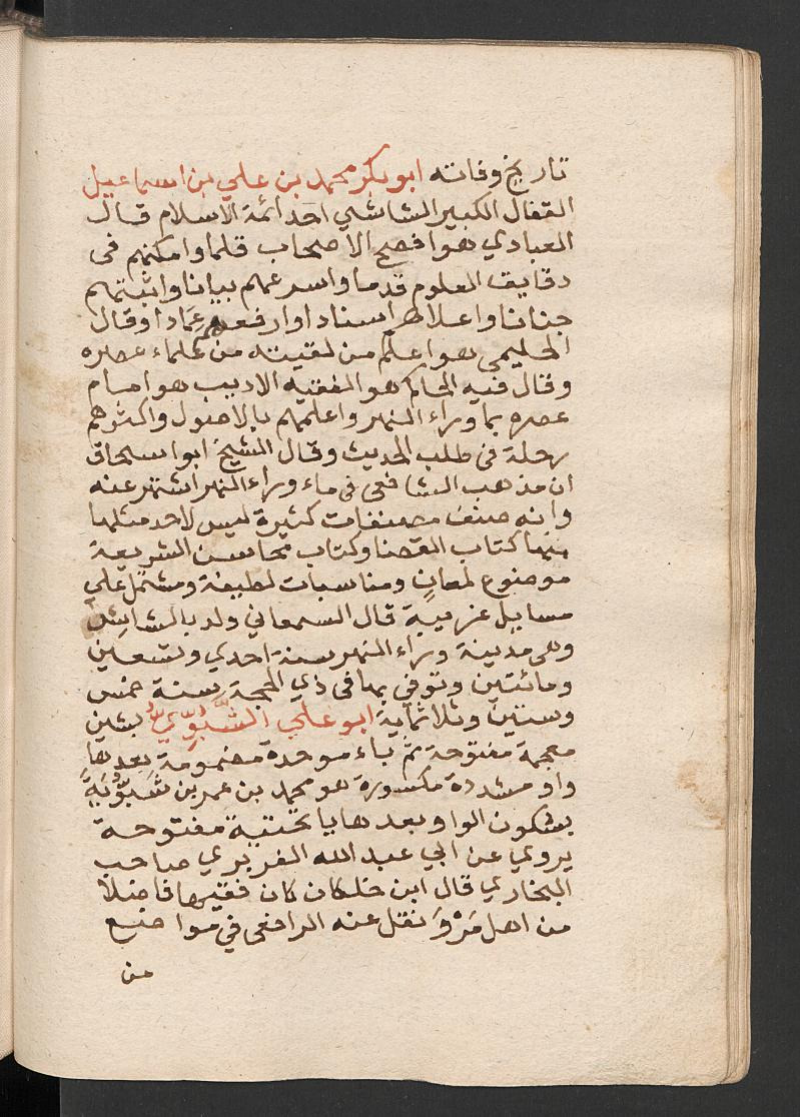 تاريخ وفاته ابو بكر محمد بن علي بن اسماعيل
القفال الكبير الشاشي احد ائمة الاسلام قال
العبادي هو افصح الاصحاب قلما وامكنهم فى
دقايق العلوم قدما واسرعهم بيانا واثبتهم
جنانا واعلاهم اسنادا وارفعهم عمادا وقال
الحليمى هو اعلم من لقيته من علماء عصره
وقال فيه الحاكم هو الفقيه الاديب هو امام
عصره بما وراء النهر واعلمهم بالاصول واكثرهم
رحلة فى طلب الحديث وقال الشيخ ابواسحاق
ان مذهب الشافعى فى ماء وراء النهر اشتهر عنه
وانه صنف مصنفات كثيرة ليس لاحد مثلها
منها كتاب القضا وكتاب محاسن الشريعة
موضوع لمعان ومناسبات لطيفة ومشتمل علي
مسايل غريبة قال السمعاني ولد بالشاش
وهى مدينة وراء النهر سنة احدي وتسعين
ومائتين وتوفي بها فى ذي الحجة سنة خمس
وستين وثلاثماية ابو علي الشَّبُوِّيّ بشين
معجمة مفتوحة ثم باء موحدة مضمومة بعدها
واو مشددة مكسورة هو محمد بن عمر بن شَبُّوْيَةَ
بسكون الواو بعدها يا تحتية مفتوحة
يروي عن ابي عبد الله الفربري صاحب
البخاري قال ابن خلكان كان فقيها فاضلا
من اهل مَرْوَ نقل عنه الرافعى في مواضع
من